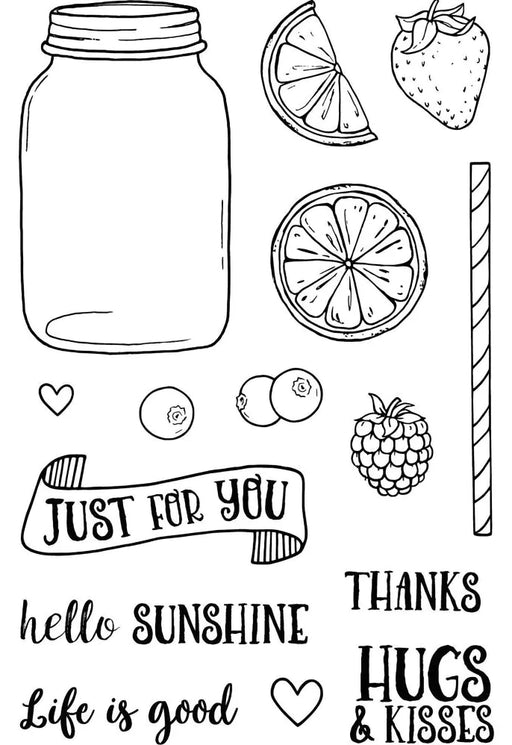 JUST FOR YOU
hello SUNSHINE
THANKS
Life is good
HUGS
& KISSES